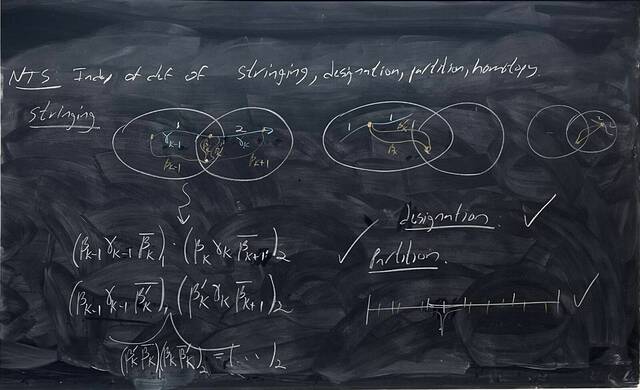 NTS: Indep of def of stringing, designation, partition, homotopy.
Stringing
1 2
γₖ₋₁ γₖ
βₖ₋₁ βₖ₊₁
1 1
βₖ
(βₖ₋₁ γₖ₋₁ β̅ₖ)₁ · (βₖ γₖ β̅ₖ₊₁)₂
(βₖ₋₁ γₖ₋₁ β̅'ₖ)₁ (β'ₖ γₖ β̅ₖ₊₁)₂
(β'ₖ β̅ₖ)₁ (βₖ β̅'ₖ)₂ = ( ⋯ )₂
designation: ✓
✓ Partition.
✓